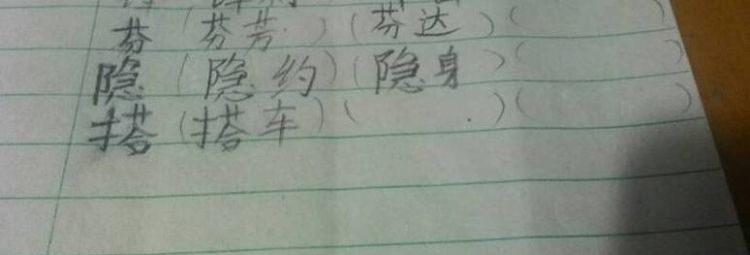 芬(芬芳)(芬达)(
隐(隐约)(隐身)( )
搭(搭车)( )( )